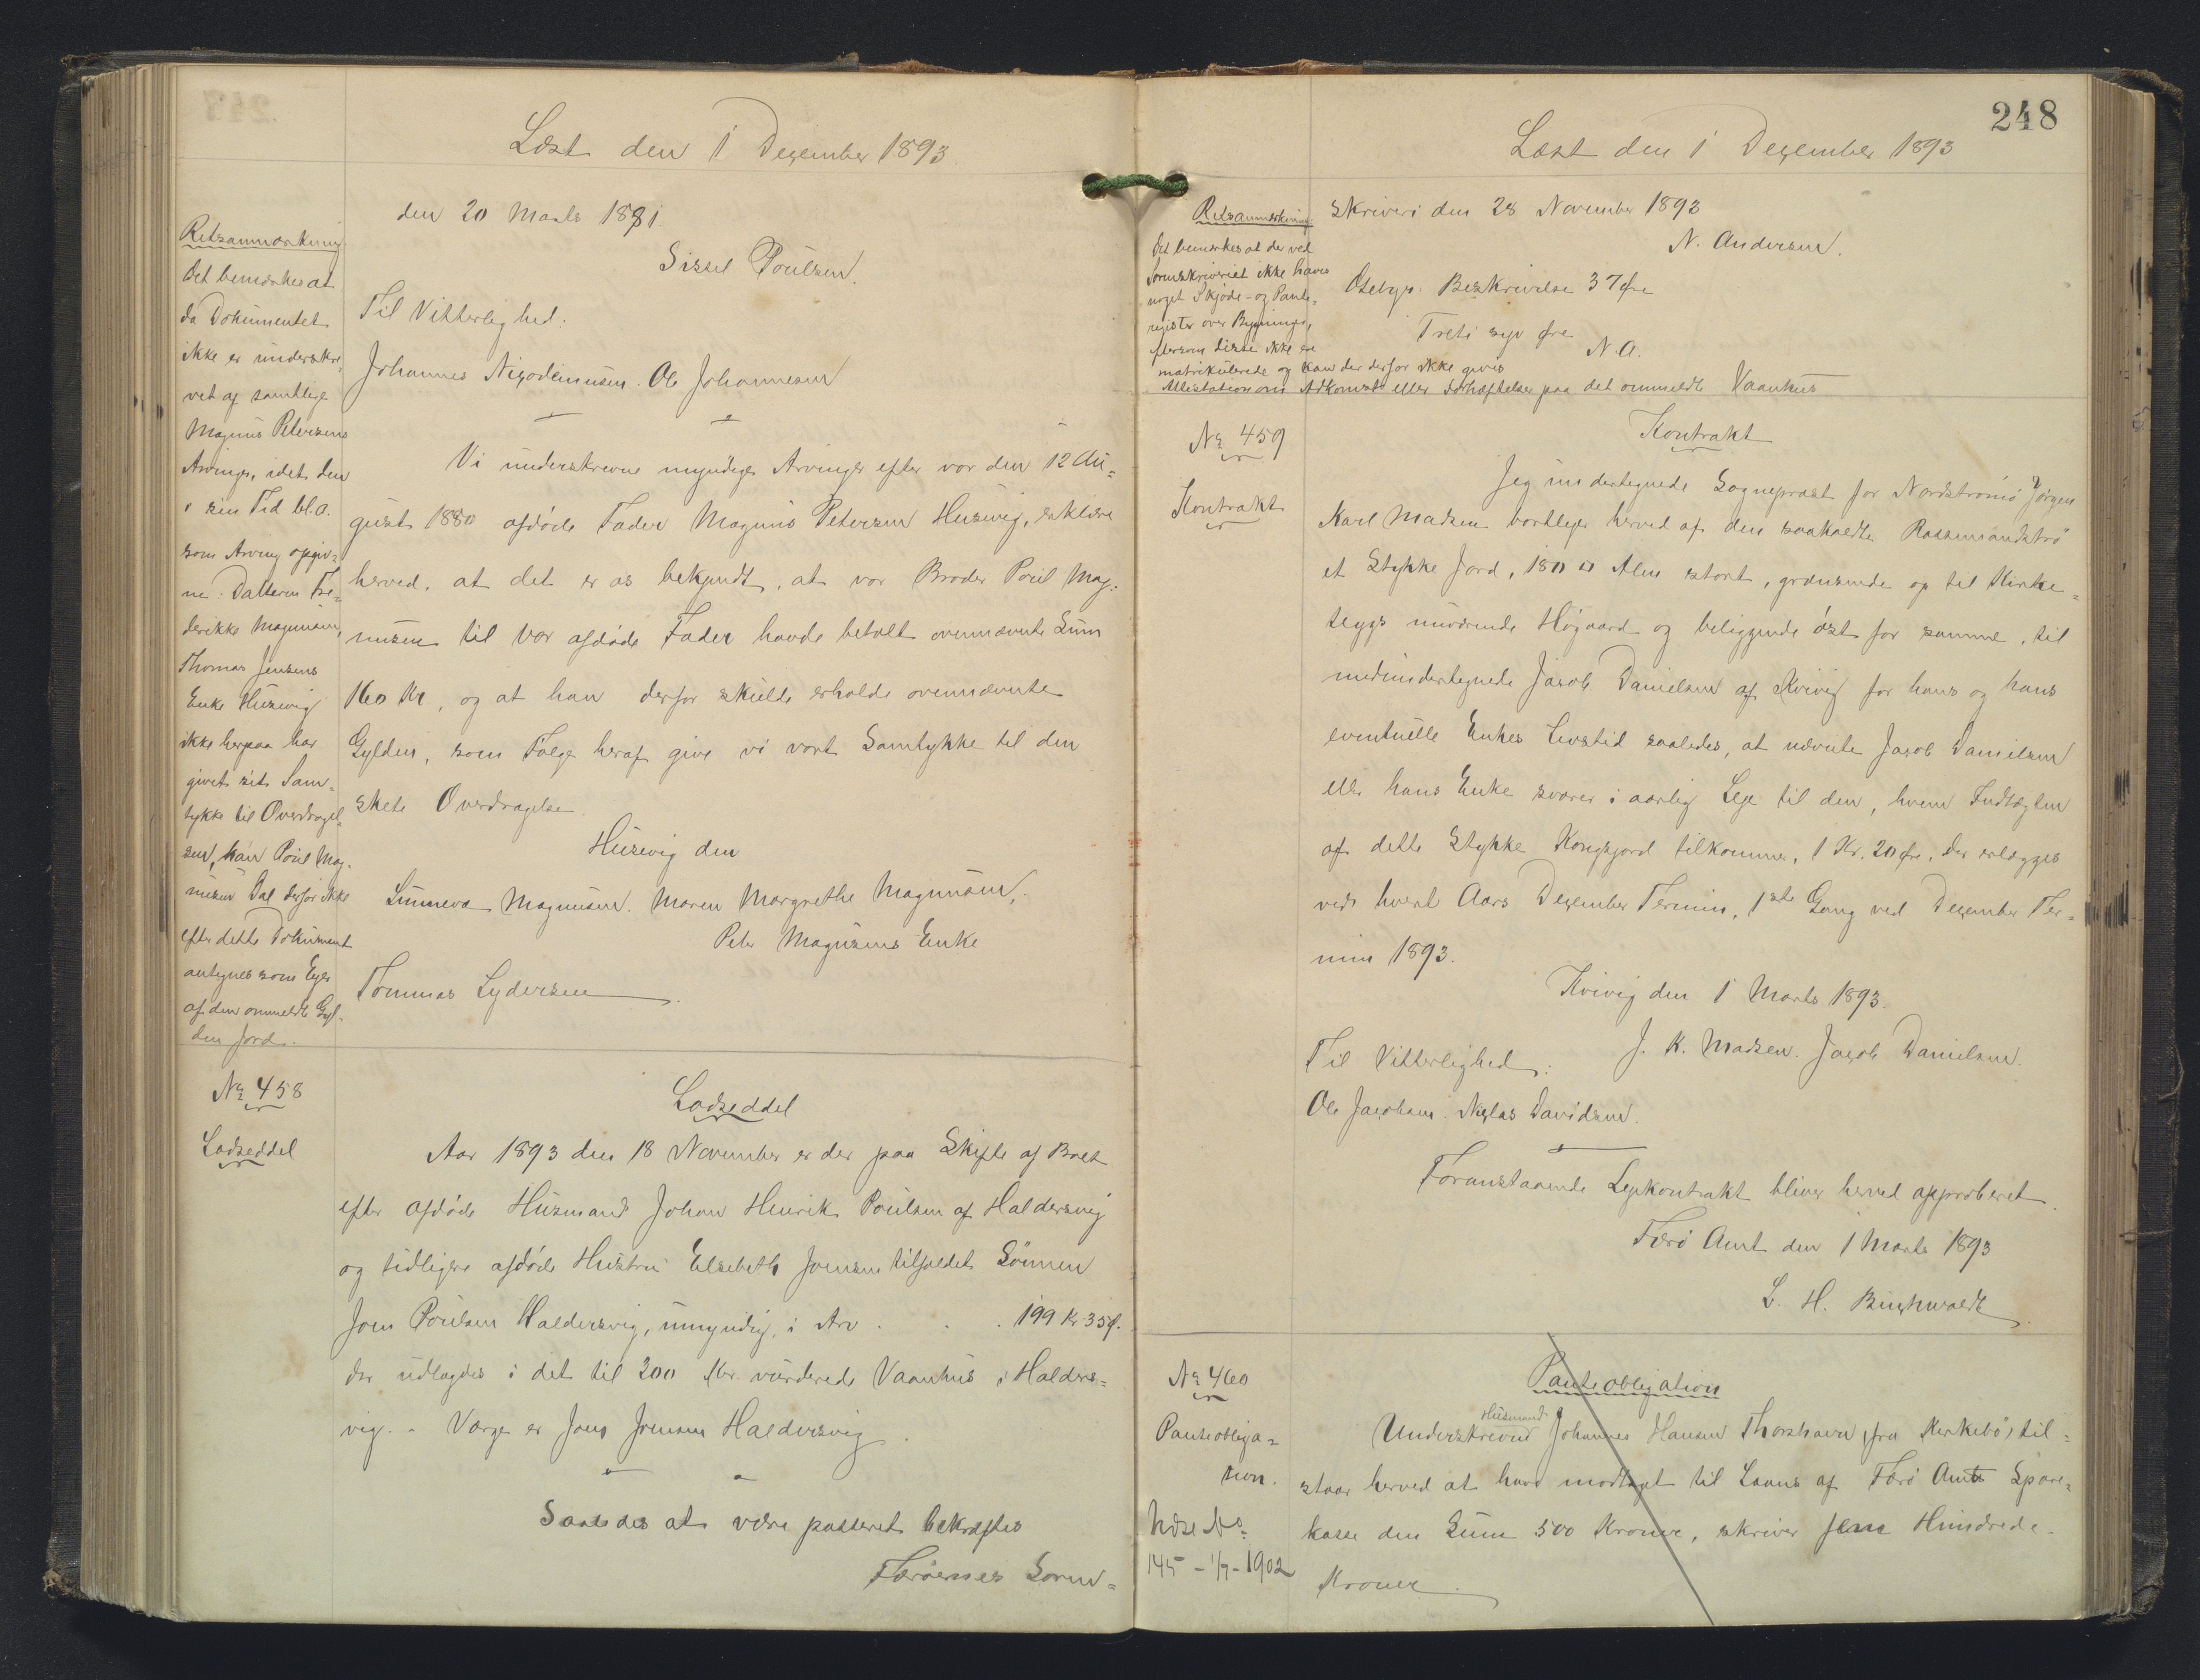 Læst den 1 Dezember 1893
den 20 Marts 1881.
Sissel Poulsen.
Til Vitterlighed:
Johannes Nizodemusen. Ole Johannesen
Retsanmærkning
Det bemærkes at
da Dokumentet
ikke er underskre,
vet af samtlige
Magnus Petersens
Arvinger, idet den
i sin Tid bl.a.
som Arving opgiv=
ne Datteren Fre=
derikke Magnusen,
Thomas Jensens
Enke Husevig
ikke herpaa har
givet sit Sam=
tykke til Overdragel=
sen, kan Poul Mag=
nusen Dal derfor ikke
efter dette Dokument
antegnes som Ejer
af den ommeldte Gyl=
den Jord.
Vi underskrevne myndige Arvinger efter vor den 12 Au=
gust 1880 afdøde Fader Magnus Petersen Husevig, erklære
herved, at det er os bekjendt, at vor Broder Poul Mag=
nusen til vor afdøde Fader havde betalt ovennævnte Sum
160 Kr, og at han derfor skulde erholde ovennævnte
Gylden, som Følge heraf give vi vort Samtykke til den
skete Overdragelse.
Husevig den
Sunneva Magnusen. Maren Margrethe Magnusen,
Peter Magnusens Enke
Tommas Lydersen
No 458
Lodseddel
Lodseddel
Aar 1893 den 18 November er der paa Skifte af Boet
efter afdøde Husmand Johan Henrik Poulsen af Haldersvig
og tidligere afdøde Hustru Elsebeth Joensen tilfaldet Sønnen
Joen Poulsen Haldersvig, umyndig, i Arv . . . 199 Kr 35 Ø.
der udlagdes i det til 200 Kr. vurderede Vaanhus i Halders=
vig. - Værge er Joen Joensen Haldersvig.
Saaledes at være passeret bekræftes
Færøernes Soren=
248
Læst den 1 Dezember 1893
skriveri den 28 November 1893
N. Andersen.
Gebyr: Beskrivelse 37 Øre
Treti syv Øre
N.A.
Retsanmærkning:
Det bemærkes at der ved
Sorenskriveriet ikke haves
noget Skjøde- og Pante=
register over Bygninger,
eftersom disse ikke ere
matrikulerede og kan der derfor ikke gives
Attestation om Adkomst eller Behæftelser paa det ommeldte Vaanhus
No 459
Kontrakt
Kontrakt
Jeg undertegnede Sognepræst for Nordstrømø Jørgen
Karl Madsen bortleger herved af den saakaldte Rossmandstrø
et Stykke Jord, 180 □ Alen stort, grænsende op til Kirke=
teygs nuværende Høgaard og beliggende øst for samme, til
medundertegnede Jacob Danielsen af Kvivig for hans og hans
eventuelle Enkes Livstid saaledes, at nævnte Jacob Danielsen
eller hans Enke svarer i aarlig Leje til den, hvem Indtægten
af dette Stykke Kongsjord tilkommer, 1 Kr. 20 Øre, der erlægges
ved hvert Aars Dezember Termin, 1ste Gang ved Dezember Ter=
min 1893.
Kvivig den 1 Marts 1893.
J. K. Madsen. Jacob Danielsen.
Til Vitterlighed:
Ole Jacobsen. Niclas Davidsen.
Foranstaaende Lejekontrakt bliver herved approberet.
Færø Amt den 1 Marts 1893
L. H. Buchwaldt
No 460
Panteobliga=
tion.
145 - 1/7 - 1902
Panteobligation
Underskrevne Husmand Johannes Hansen Thorshavn, fra Kirkebø, til=
staar herved at have modtaget til Laans af Færø Amts Spare=
kasse den Sum 500 Kroner, skriver fem Hundrede
Kroner.